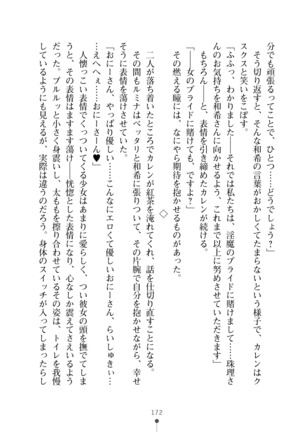 分でも頑張るってことで、ひとつ……どうでしょう？」
そう切り返すと、そんな和希の言葉がおかしくてたまらないという様子で、カレンはク
スクスと笑いをこぼす。
「ふふっ、わかりました――それでは私たちは、淫魔のプライドに賭けまして……珠理さ
んのお気持ちを和希さんに向かせるよう、これまで以上に努めさせていただきます」
もちろん――と、表情を引き締めたカレンが続ける。
「――女のプライドに賭けても、ですよ？」
その燃える瞳には、なにやら期待を抱かせるものがあった。
◇
二人が落ち着いたところでカレンが紅茶を淹れてくれ、話を仕切り直すことになる。
その間もルミナはベッタリと和希に張りついて、その片腕で自分を抱かせながら、幸せ
そうに表情を蕩けさせていた。
「おにーさん、やっぱり優しい……エロくて優しいおにーさん、らいしゅきぃ……
えへへぇ……おにーさーん♥」
人懐っこい表情でくっついてくる少女はあまりに愛らしく、つい彼女の頭を撫でてしま
うと、その表情はますます蕩け――恍惚とした表情になり、心なしか震えてさえいるよう
だった。ブルルッと小さく身震いし、太ももを擦り合わせているその姿は、トイレを我慢
しているようにも見えるが、実際は違うのだろう。身体のスイッチが入ってしまったらし
172